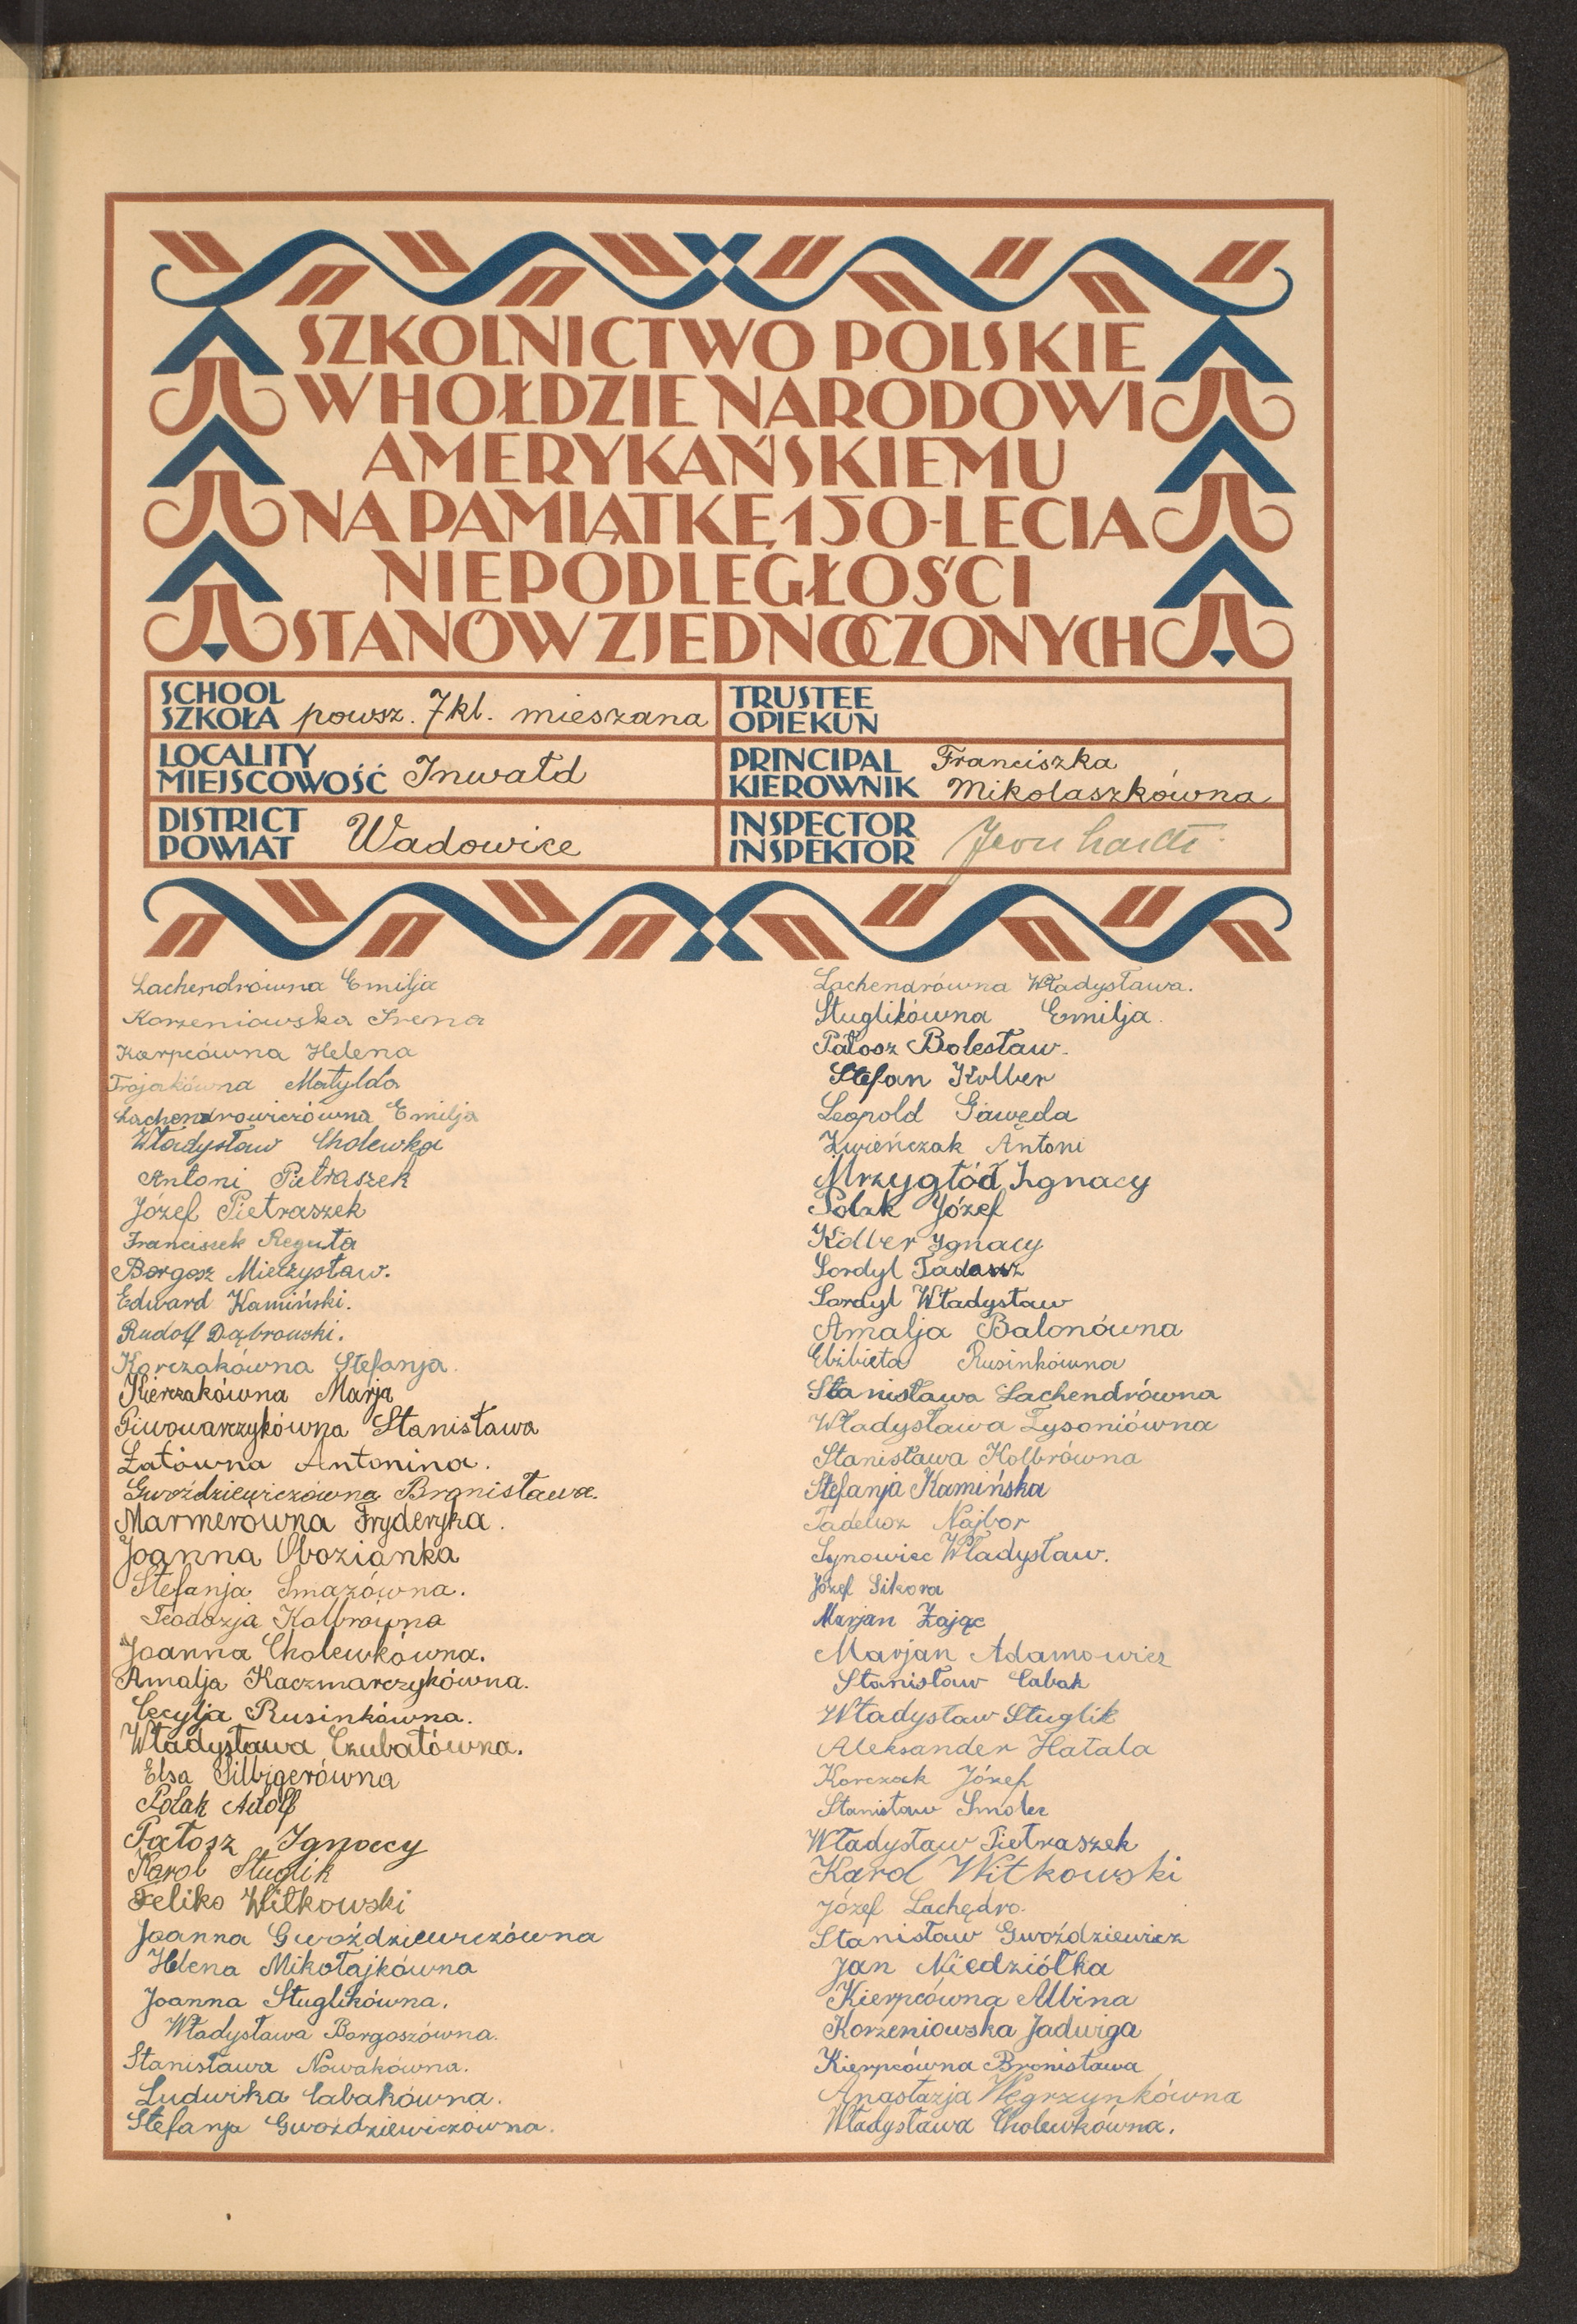 SZKOLNICTWO POLSKIE
W HOŁDZIE NARODOWI
AMERYKAŃSKIEMU
NA PAMIĄTKĘ 150-LECIA
NIEPODLEGŁOŚCI
STANÓW ZJEDNOCZONYCH
SCHOOL
SZKOŁA powsz. 7kl. mieszana
TRUSTEE
OPIEKUN
LOCALITY
MIEJSCOWOŚĆ Inwałd
PRINCIPAL Franciszka
KIEROWNIK Mikołaszkówna
DISTRICT
POWIAT Wadowice
INSPECTOR
INSPEKTOR
Lachendrówna Emilja
Korzeniowska Irena
Karpcówna Helena
Trojakówna Matylda
Lachendrowiczówna Emilja
Władysław Cholewka
Antoni Pietraszek
Józef Pietraszek
Franciszek Reguła
Borgosz Mieczysław.
Edward Kamiński.
Rudolf Dąbrowski.
Korczakówna Stefanja.
Kierczakówna Marja
Piwowarczykówna Stanisława
Łatówna Antonina.
Gwoździewiczówna Bronisława.
Marmerówna Fryderyka.
Joanna Obozianka
Stefanja Smazówna.
Teodozja Kolbrówna
Joanna Cholewkówna.
Amalja Kaczmarczykówna.
Cecylja Rusinkówna.
Władysława Czubatówna.
Elsa Silbigerówna
Polak Adolf
Patosz Ignacy
Karol Stuglik
Feliks Witkowski
Joanna Gwoździewiczówna
Helena Mikołajkówna
Joanna Stuglikówna.
Władysława Borgoszówna.
Stanisława Nowakówna.
Ludwika Cabakówna.
Stefanja Gwoździewiczówna.
Lachendrówna Władysława.
Stuglikówna Emilja.
Patosz Bolesław.
Stefan Kolber
Leopold Gawęda
Zwieńczak Antoni
Mrzygłód Ignacy
Polak Józef
Kolber Ignacy
Sordyl Tadeusz
Sordyl Władysław
Amalja Balonówna
Elżbieta Rusinkówna
Stanisława Lachendrówna
Władysława Łysoniówna
Stanisława Kolbrówna
Stefanja Kamińska
Tadeusz Najbor
Synowiec Władysław.
Józef Sikora
Marjan Zając
Marjan Adamowicz
Stanisław Cabak
Władysław Stuglik
Aleksander Hatala
Korczak Józef
Stanisław Smolec
Władysław Pietraszek
Karol Witkowski
Józef Lachędro.
Stanisław Gwoździewicz
Jan Niedziółka
Kierpcówna Albina
Korzeniowska Jadwiga
Kierpcówna Bronisława
Anastazja Węgrzynkówna
Władysława Cholewkówna.